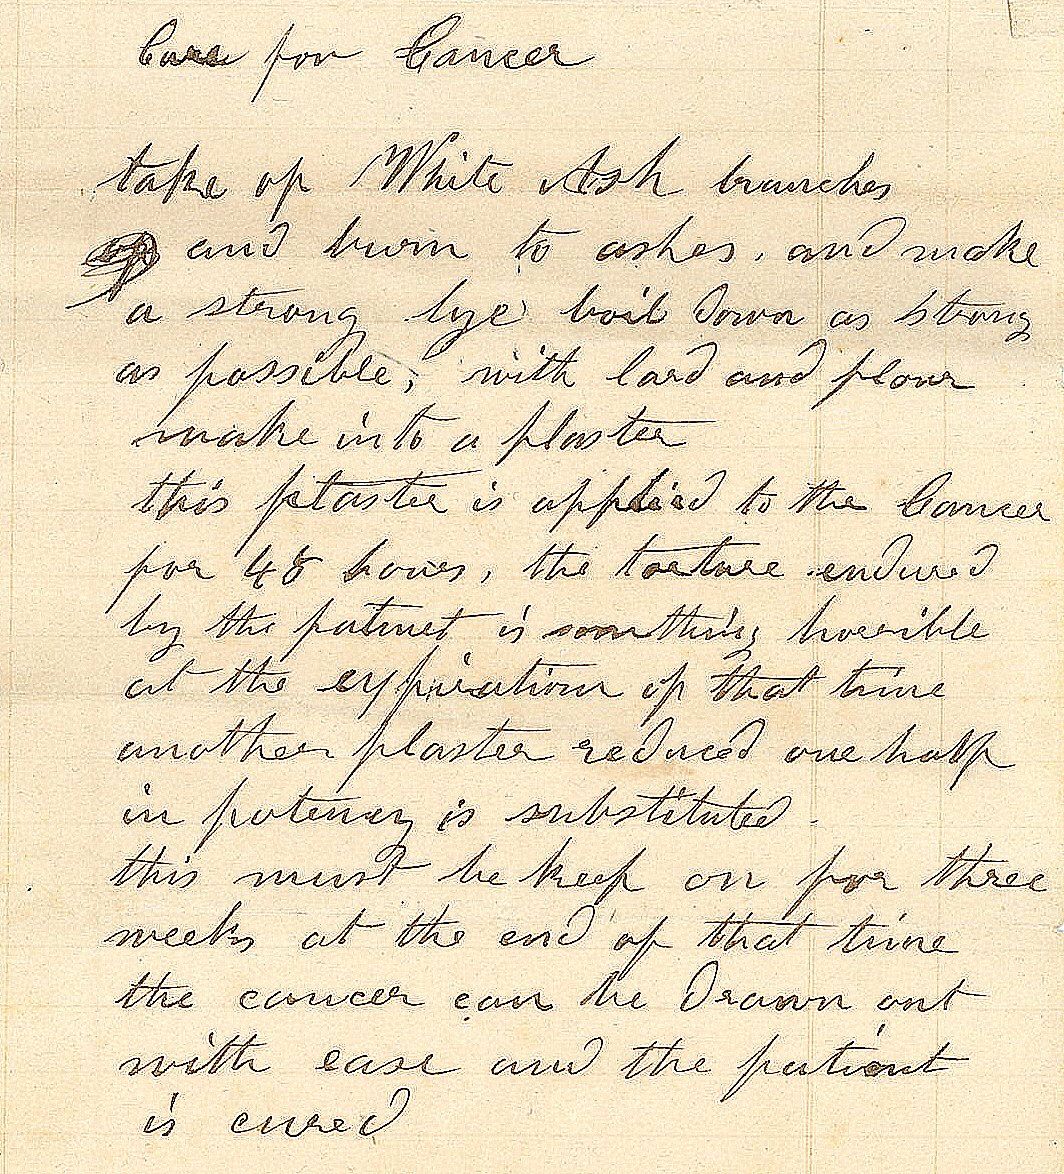 Cure for Cancer
take of White Ash branches
and burn to ashes. and make
a strong lye boil down as strong
as possible, with lard and flour
make into a plaster
this plaster is applied to the Cancer
for 48 hours, the torture endured
by the patinet is somthing horrible
at the expiration of that time
another plaster reduced one half
in potency is substituted.
this must be keep on for three
weeks at the end of that time
the cancer can be drawn out
with ease and the patient
is cured